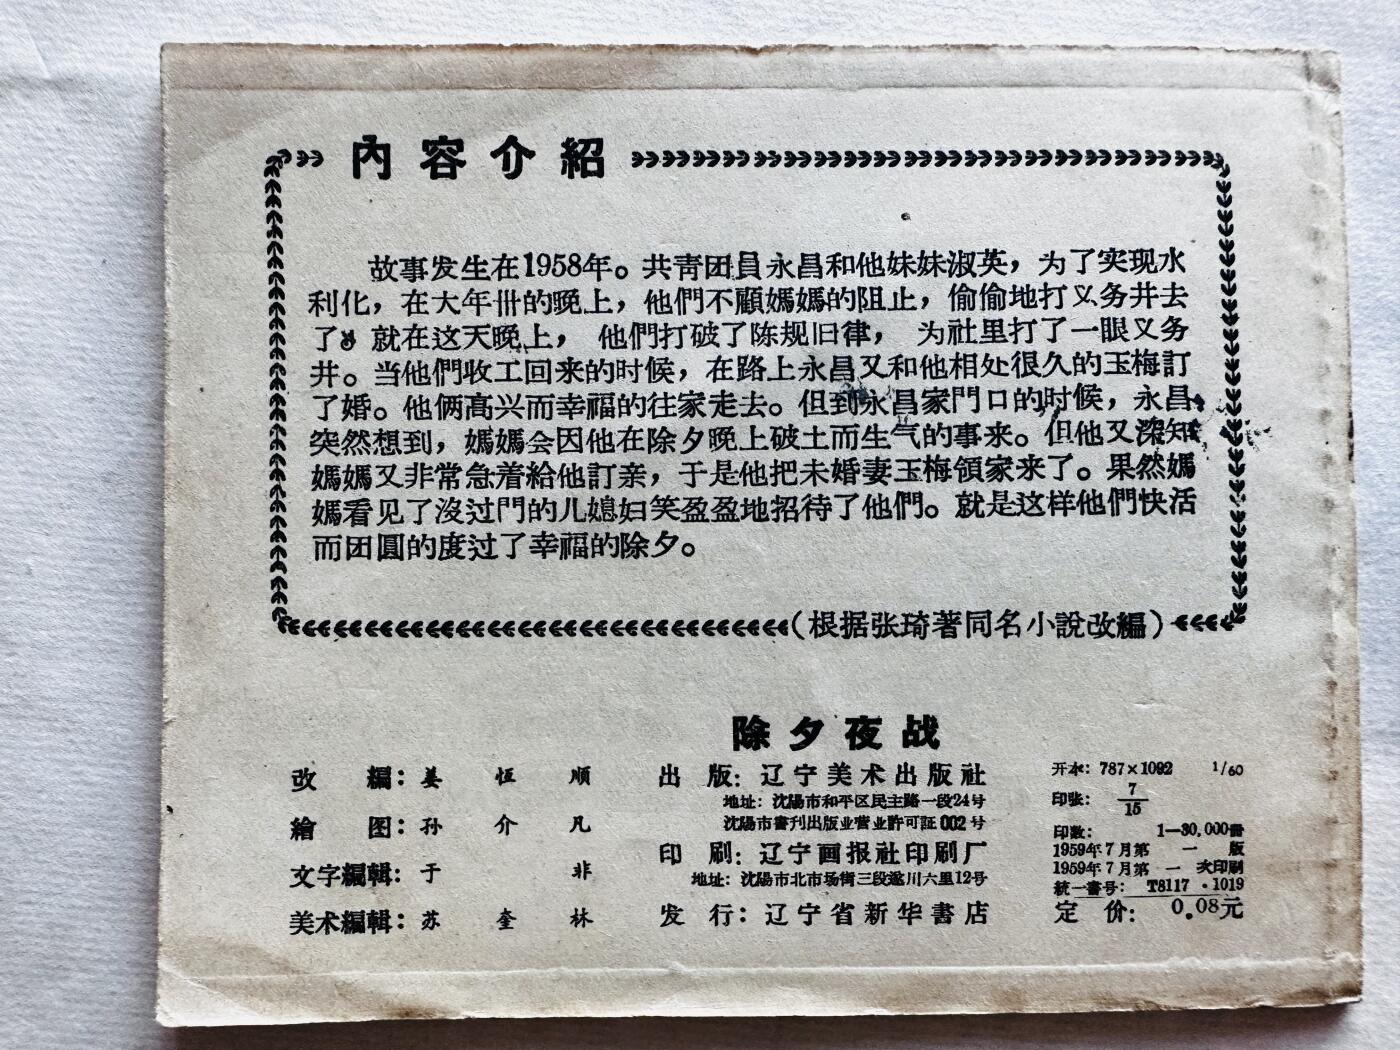 內容介紹
故事发生在1958年。共靑团員永昌和他妹妹淑英，为了实现水
利化，在大年卅的晚上，他們不顧媽媽的阻止，偷偷地打义务井去
了。就在这天晚上，他們打破了陈规旧律，为社里打了一眼义务
井。当他們收工回来的时候，在路上永昌又和他相处很久的玉梅訂
了婚。他俩高兴而幸福的往家走去。但到永昌家門口的时候，永昌
突然想到，媽媽会因他在除夕晚上破土而生气的事来。但他又深知
媽媽又非常急着給他訂亲，于是他把未婚妻玉梅領家来了。果然媽
媽看见了沒过門的儿媳妇笑盈盈地招待了他們。就是这样他們快活
而团圓的度过了幸福的除夕。
（根据张琦著同名小說改編）
除夕夜战
改編：姜恒順
繪图：孙介凡
文字編輯：于非
美术編輯：苏奎林
出版：辽宁美术出版社
地址：沈陽市和平区民主路一段24号
沈陽市書刊出版业营业許可証002号
印刷：辽宁画报社印刷厂
地址：沈陽市北市场街三段遼川六里12号
发行：辽宁省新华書店
开本：787×1092 1/60
印张：7/15
印数：1—30,000冊
1959年7月第一版
1959年7月第一次印刷
統一書号：T8117·1019
定价：0.08元